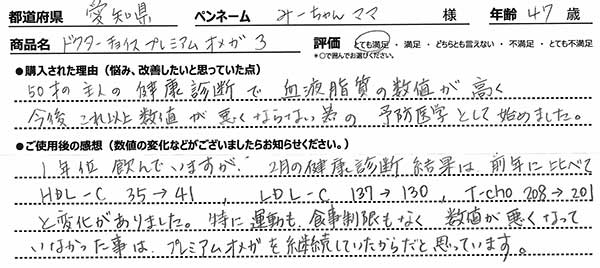 都道府県 愛知県 ペンネーム みーちゃんママ 様 年齢 47 歳
商品名 ドクターチョイス プレミアムオメガ3 評価 とても満足 ・ 満足 ・ どちらとも言えない ・ 不満足 ・ とても不満足
*○で囲んでお選びください。
●購入された理由（悩み、改善したいと思っていた点）
50才の主人の健康診断で血液脂質の数値が高く
今後これ以上数値が悪くならない為の予防医学として始めました。
●ご使用後の感想（数値の変化などがございましたらお知らせください。）
1年位飲んでいますが、2月の健康診断結果は前年に比べて
HDL-C 35→41 , LDL-C 137→130 , T-cho 208→201
と変化がありました。特に運動も、食事制限もなく 数値が悪くなって
いなかった事は、プレミアムオメガを継続していたからだと思っています。